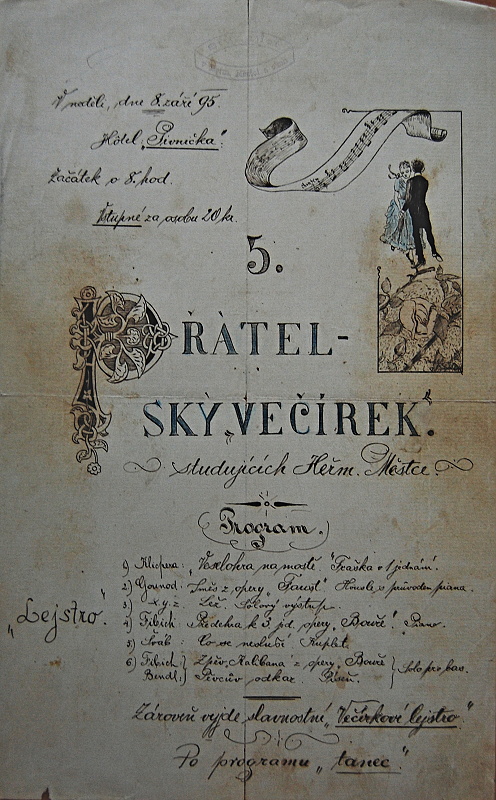 V neděli, dne 8. září 95.
Hôtel „Pivnička“.
Začátek o 8. hod.
Vstupné za osobu 20 kr.
5.
PŘÁTEL-
SKÝ „VEČÍREK“.
studujících Heřm. Městce.
Program.
1) Klicpera: „Veselohra na mostě.“ Fraška o 1 jednání.
2) Gounod: Směs z opery „Faust“ Housle s průvodem piana.
3) X.y.z. Lež. Solový výstup.
4) Fibich: Předehra k 3 jed. opery „Bouře“. Piano.
5) Šváb: Co se nesluší Kuplet.
6) Fibich: Zpěv „Kalibana“ z opery „Bouře
Bendl: Pěvcův odkaz. Píseň. Solo pro bas.
„Lejstro“.
Zároveň vyjde slavnostní „Večírkové lejstro“
Po programu „tanec“.